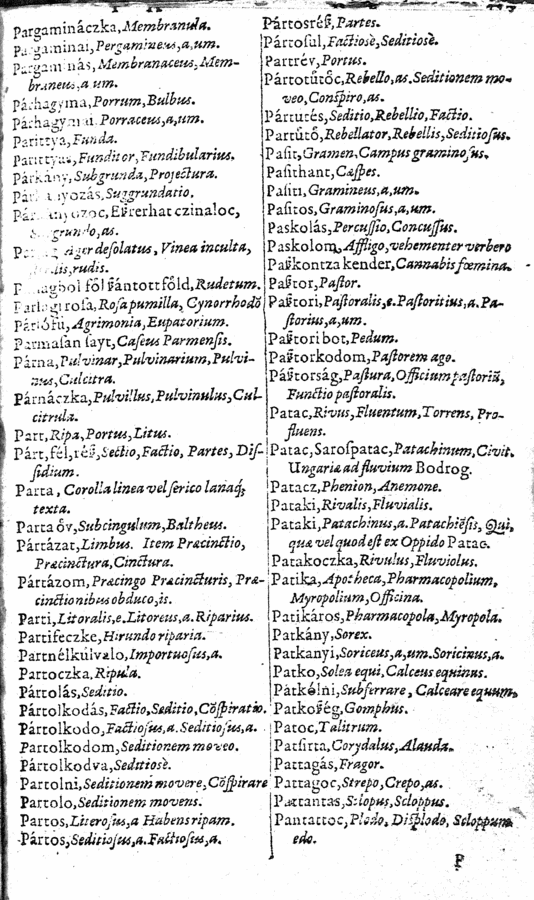 Pargamináczka, Membranula.
Pargaminai, Pergamineus, a, um.
Pargaminás, Membranaceus, Mem-
braneus, a um.
Párhagyma, Porrum, Bulbus.
Párhagymai, Porraceus, a, um.
Parittya, Funda.
Parittyas, Funditor, Fundibularius.
Párkány, Subgrunda, Projectura.
Párkányozás, Suggrundatio.
Eſzterhat czinaloc,
Suggrundo, as.
Ager deſolatus, Vinea inculta,
rudis.
fól ſzántott fóld, Rudetum.
Parlagi roſa, Roſa pumilla, Cynorrhodō
Párlófú, Agrimonia, Eupatorium.
Parmaſan ſayt, Caſeus Parmenſis.
Párna, Pulvinar, Pulvinarium, Pulvi-
nus, Culcitra.
Párnáczka, Pulvillus, Pulvinulus, Cul-
citrula.
Part, Ripa, Portus, Litus.
Párt, fél, réſz, Sectio, Factio, Partes, Diſ-
ſidium.
Parta, Corolla linea vel ſerico lanaq́;
texta.
Parta óv, Subcingulum, Baltheus.
Pártázat, Limbus. Item Præcinctio,
Præcinctura, Cinctura.
Pártázom, Præcingo Præcincturis, Præ-
cinctionibus obduco, is.
Parti, Litoralis, e. Litoreus, a. Riparius.
Partifeczke, Hirundo riparia.
Partnélkúlvalo, Importuoſus, a.
Partoczka, Ripula.
Pártolás, Seditio.
Pártolkodás, Factio, Seditio, Cōſpiratio.
Pártolkodo, Factioſus, a. Seditioſus, a.
Partolkodom, Seditionem moveo.
Pártolkodva, Seditiosè.
Partolni, Seditionem movere, Cōſpirare
Partolo, Seditionem movens.
Partos, Literoſus, a Habens ripam.
Pártos, Seditioſus, a. Factioſus, a.
Pártosréſz, Partes.
Pártoſul, Factiosè, Seditiosè.
Partrév, Portus.
Pártotútóc, Rebello, as. Seditionem mo-
veo, Conſpiro, as.
Pártutés, Seditio, Rebellio, Factio.
Partútó, Rebellator, Rebellis, Seditioſus.
Paſit, Gramen, Campus graminoſus.
Paſithant, Cæſpes.
Paſiti, Gramineus, a, um.
Paſitos, Graminoſus, a, um.
Paskolás, Percuſſio, Concuſſus.
Paskolom, Affligo, vehementer verbero
Paſzkontza kender, Cannabis fœmina.
Paſztor, Paſtor.
Paſztori, Paſtoralis, e. Paſtoritius, a. Pa-
ſtorius, a, um.
Paſztori bot, Pedum.
Paſztorkodom, Paſtorem ago.
Páſztorság, Paſtura, Officium paſtoriū,
Functio paſtoralis.
Patac, Rivus, Fluentum, Torrens, Pro-
fluens.
Patac, Saroſpatac, Patachinum, Civit.
Ungariæ ad fluvium Bodrog.
Patacz, Phenion, Anemone.
Pataki, Rivalis, Fluvialis.
Pataki, Patachinus, a. Patachiēſis, Qui,
quæ vel quod eſt ex Oppido Patac.
Patakoczka, Rivulus, Fluviolus.
Patika, Apotheca, Pharmacopolium,
Myropolium, Officina.
Patikáros, Pharmacopola, Myropola.
Patkány, Sorex.
Patkanyi, Soriceus, a, um. Soricinus, a.
Patko, Solea equi, Calceus equinus.
Patkólni, Subferrare, Calceare equum.
Patkoſzég, Gomphus.
Patoc, Talitrum.
Patſirta, Corydalus, Alauda.
Pattagás, Fragor.
Pattagoc, Strepo, Crepo, as.
Pattantas, Sclopus, Scloppus.
Pantattoc, Plodo, Diſplodo, Scloppum
edo.
P